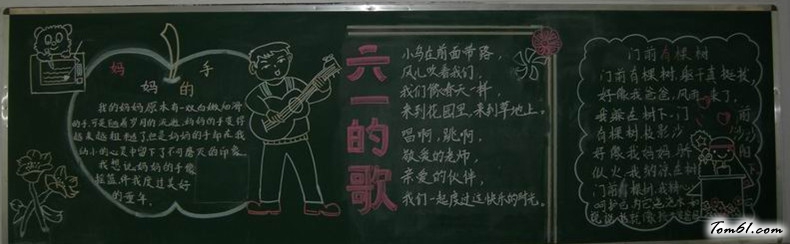 妈妈的手
我的妈妈原本有一双白嫩细滑
的手,可是随着岁月的流逝,妈妈的手变得
越来越粗糙了,但是妈妈的手却在我
幼小的心灵中留下了不可磨灭的印象。
我想让妈妈的手像
摇篮伴我度过美好
的童年。
六一的歌
小鸟在前面带路,
风儿吹着我们,
我们像春天一样,
来到花园里,来到草地上。
唱啊,跳啊,
敬爱的老师,
亲爱的伙伴,
我们一起度过这快乐的时光。
门前有棵树
门前有棵树,躯干直挺拔,
好像我爸爸,风雨来了,
我躲在树下,门前
有棵树,枝影沙沙
好像我妈妈
似火,我纳凉在树阴下
门前有棵树,我
Tom61.com